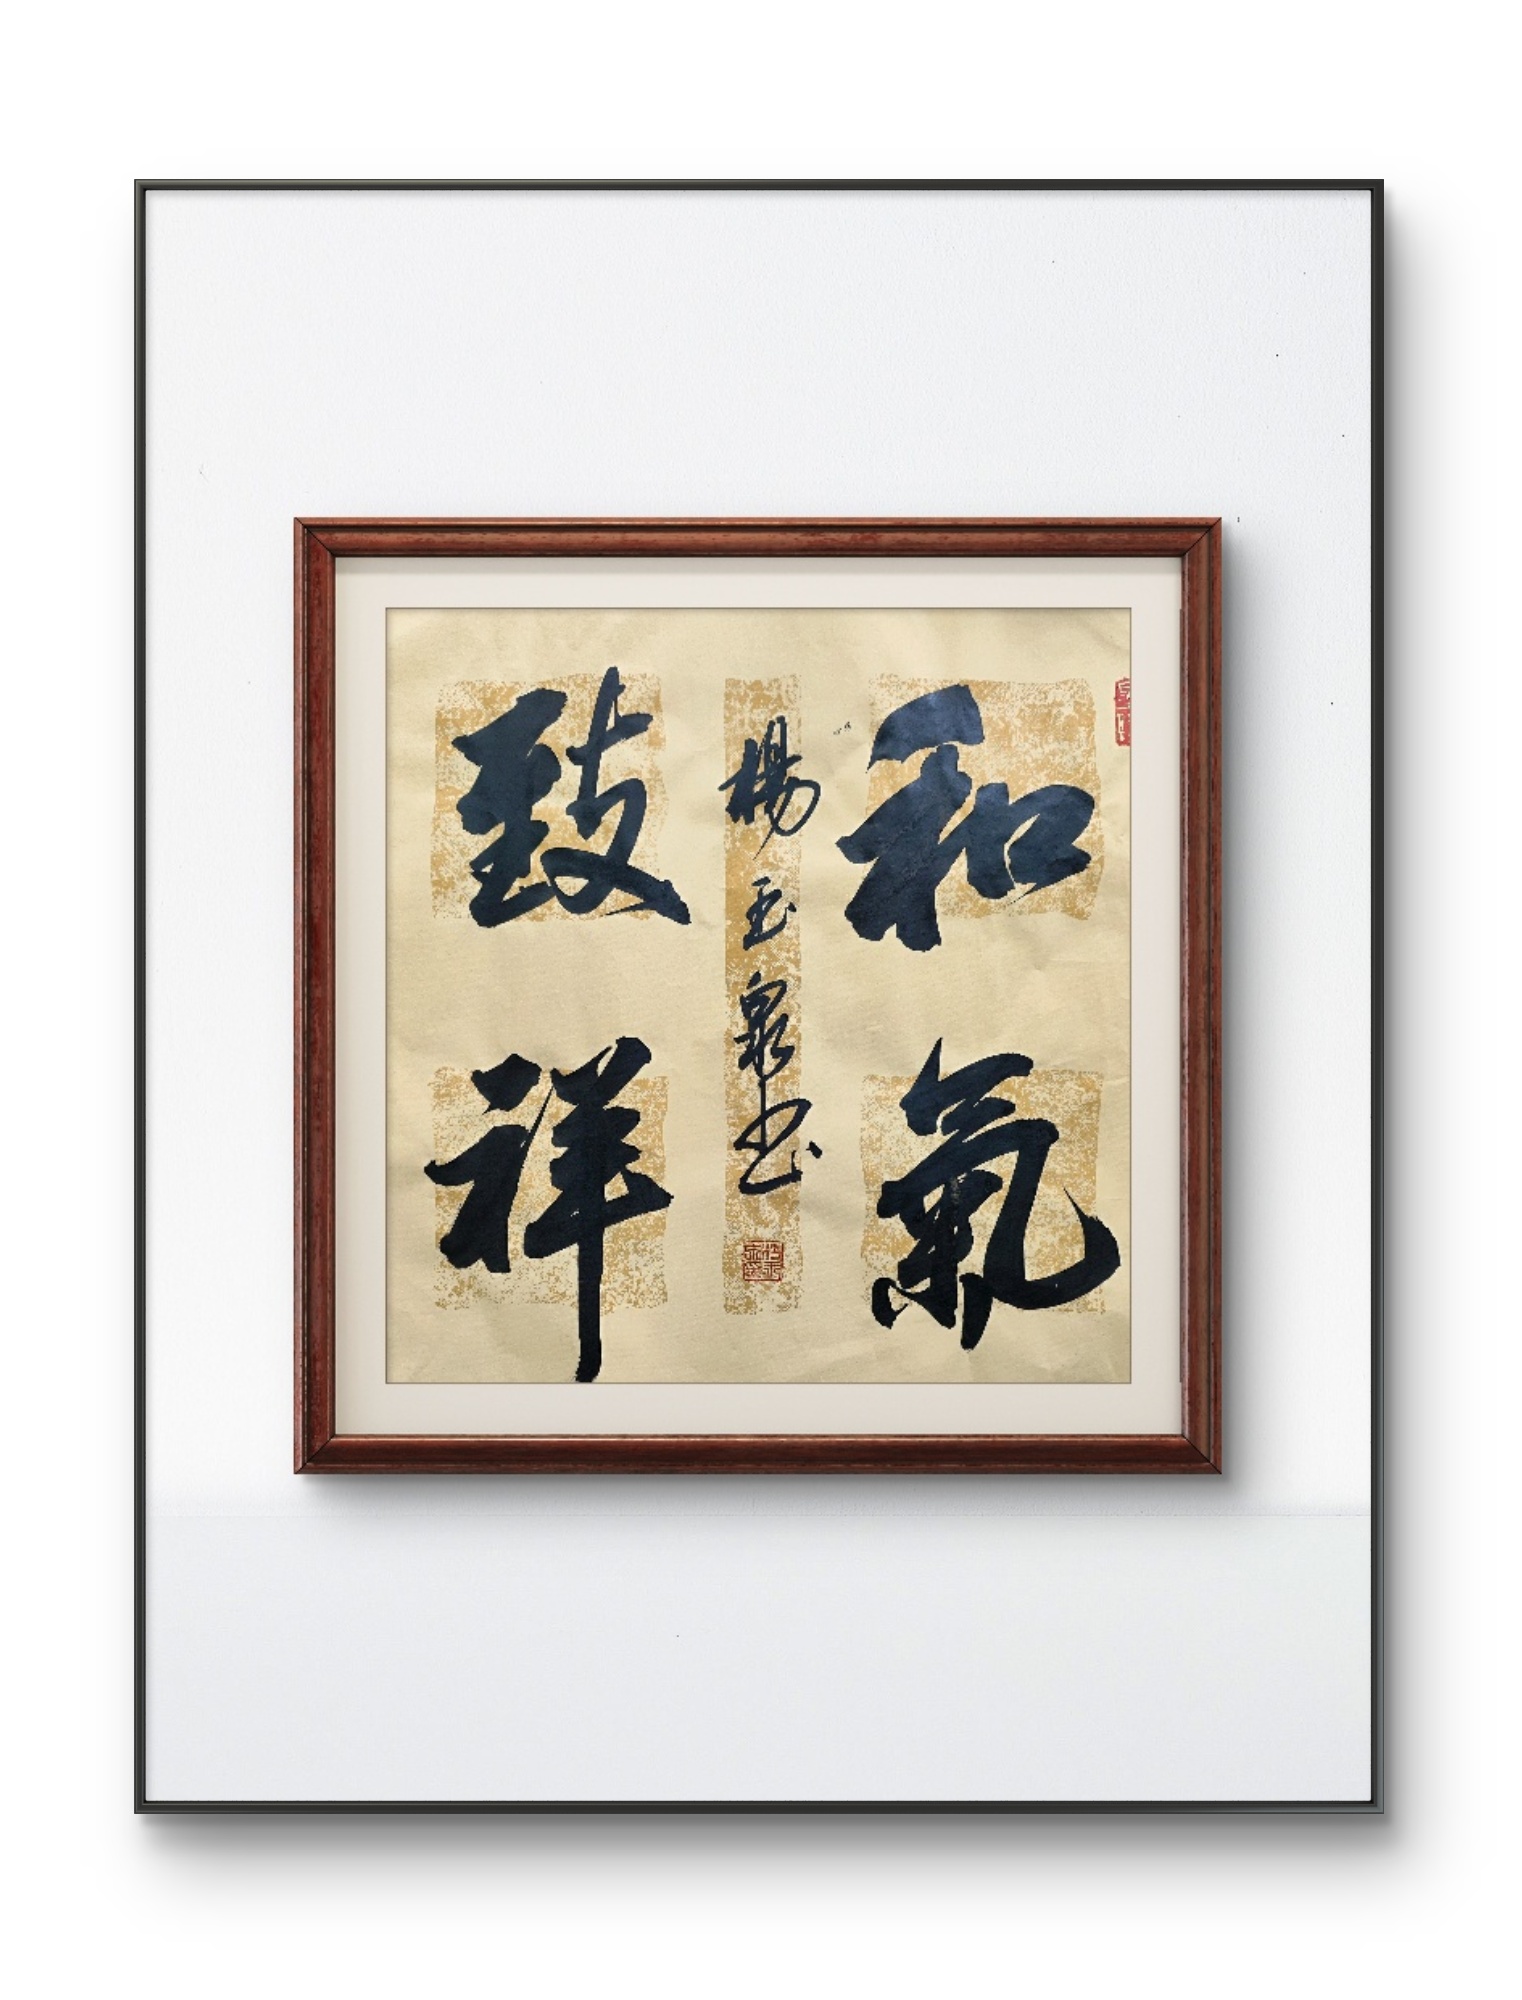 和氣
致祥
楊玉泉书